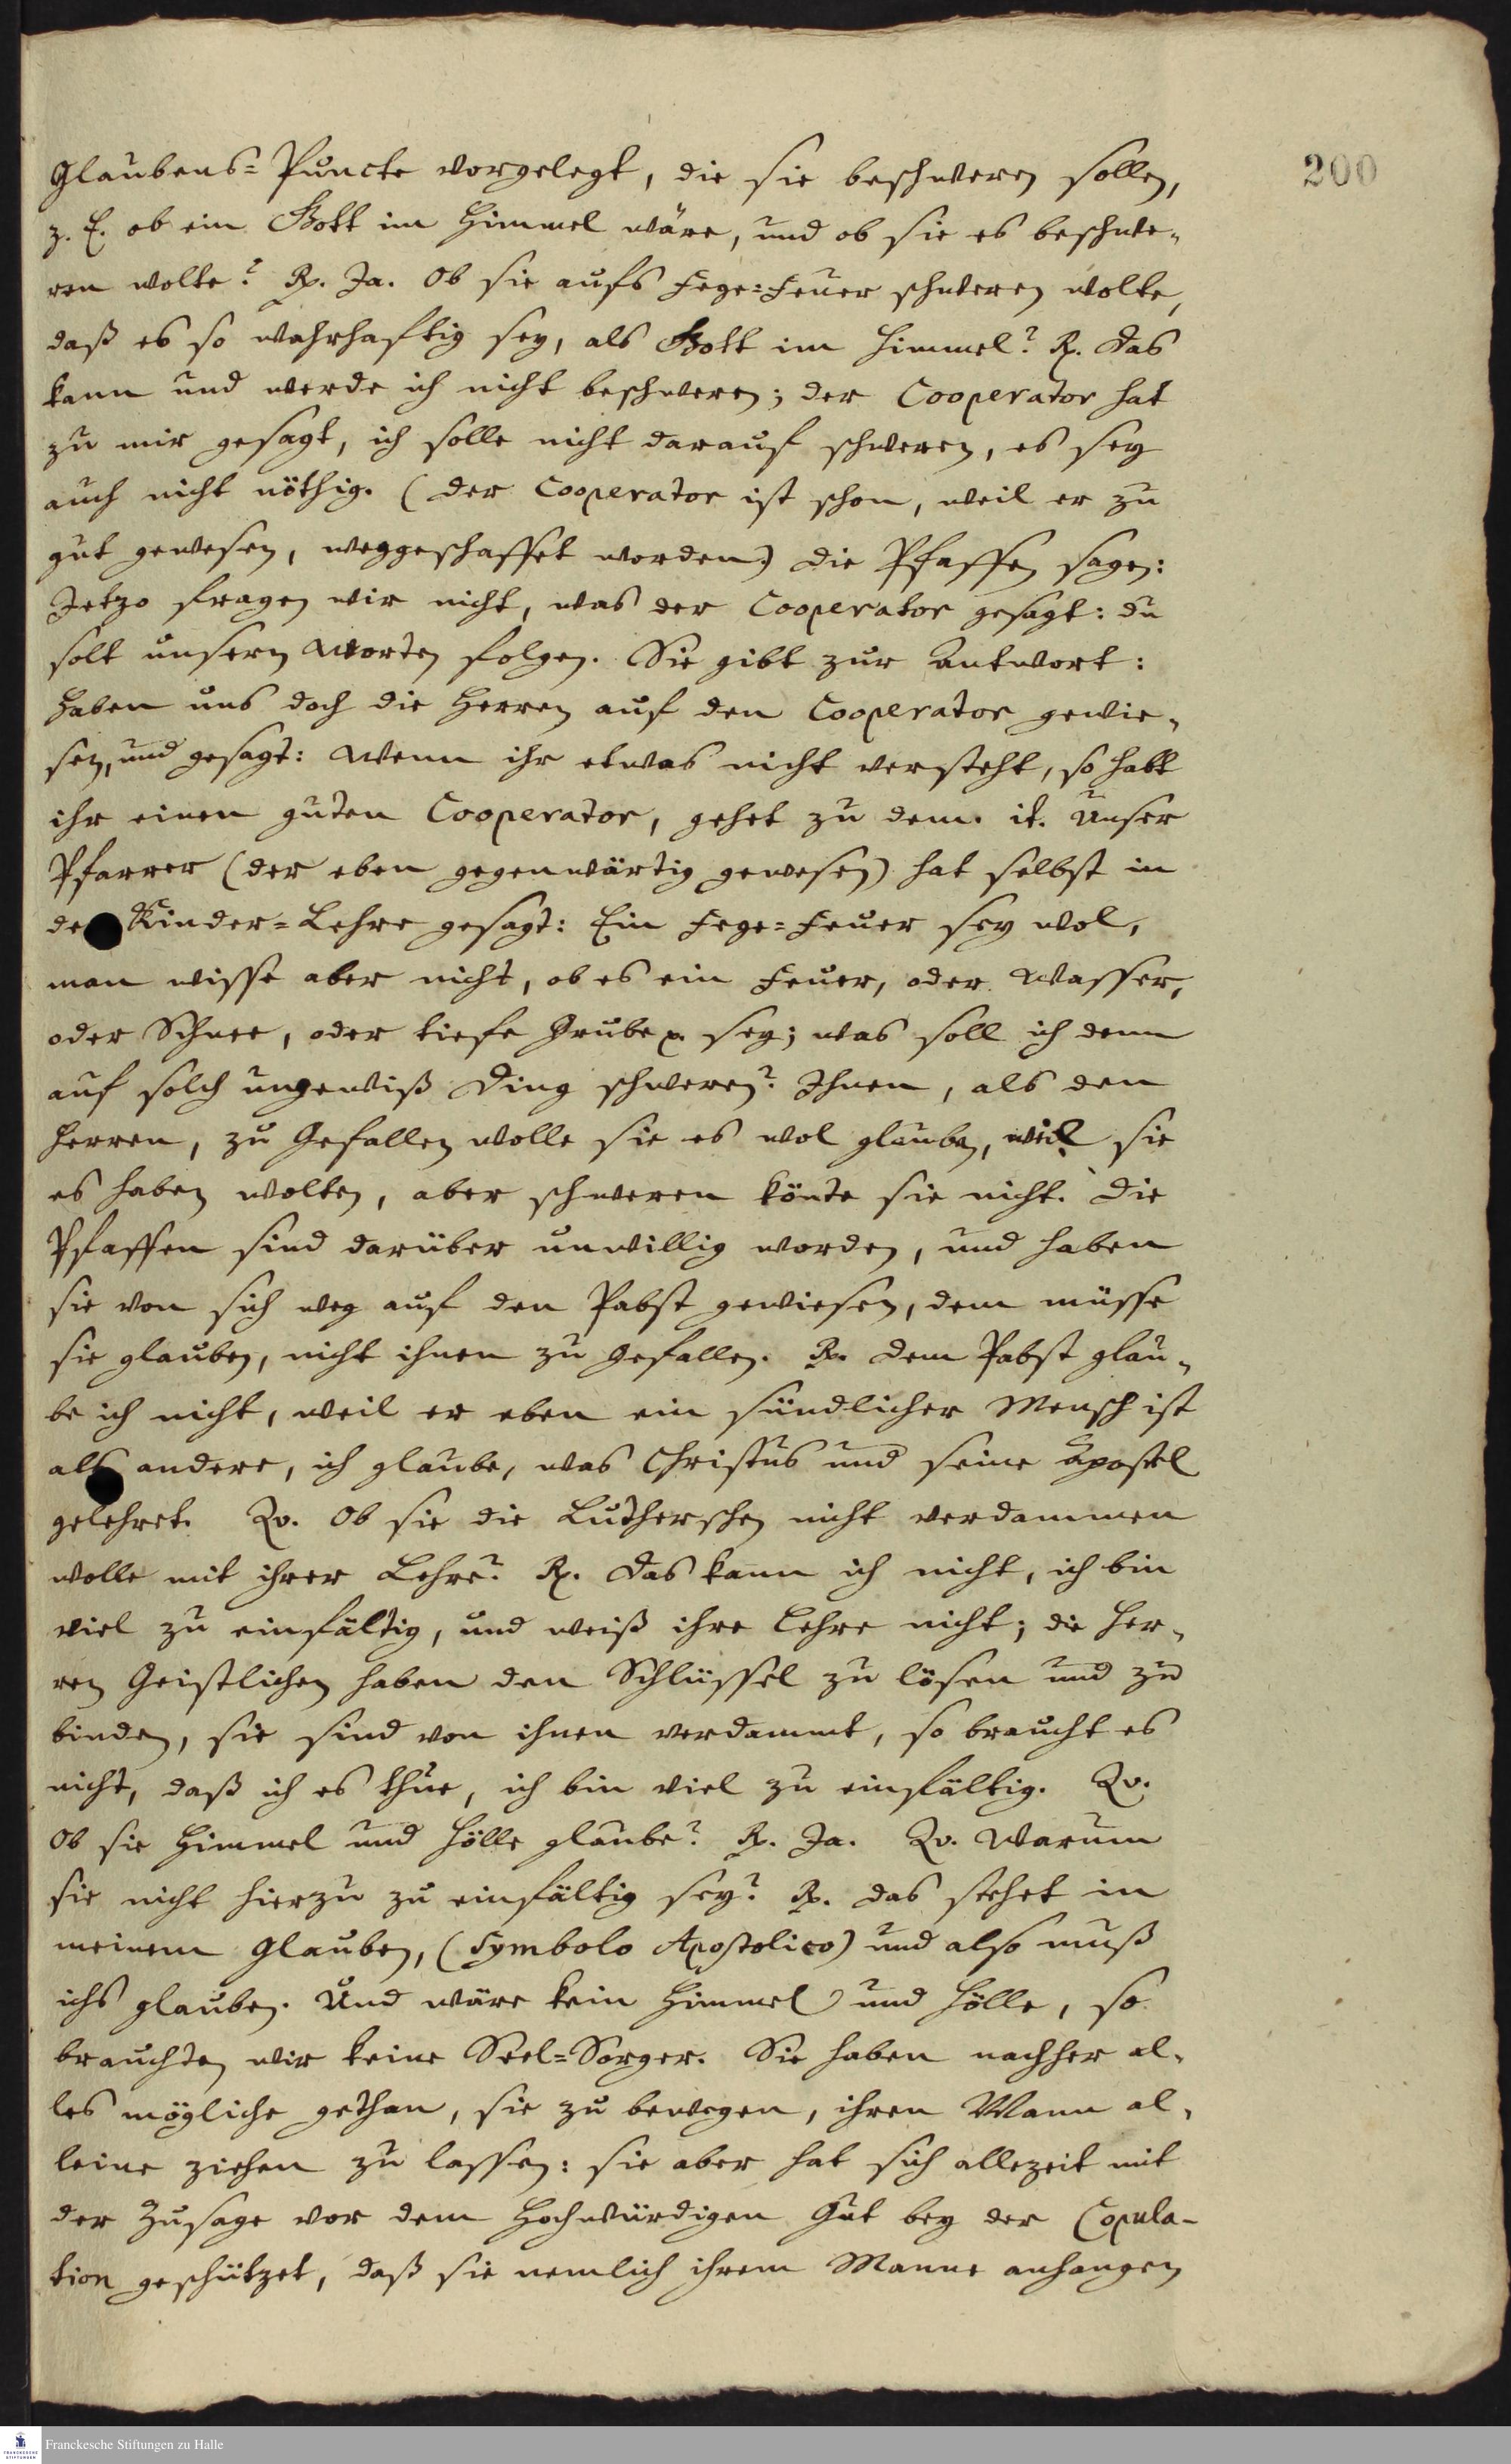 200
Glaubens=Puncte vorgelegt, die sie beschweren sollen,
z. E. ob ein Gott im Himmel wäre, und ob sie es beschwe-
ren wolte? Rx. Ja. Ob sie aufs Fege=Feuer schweren wolte,
daß es so wahrhaftig sey, als Gott im Himmel? Rx. Das
kann und werde ich nicht beschweren; der Cooperator hat
zu mir gesagt, ich solle nicht darauf schweren, es sey
auch nicht nöthig. (Der Cooperator ist schon, weil er zu
gut gewesen, weggeschaffet worden) Die Pfaffen sagen:
Jetzo fragen wir nicht, was der Cooperator gesagt: du
solt unsern Worten folgen. Sie gibt zur Antwort:
Haben uns doch die Herren auf den Cooperator gewie-
sen, und gesagt: Wenn ihr etwas nicht versteht, so habt
ihr einen guten Cooperator, gehet zu dem. it. Unser
Pfarrer (der eben gegenwärtig gewesen) hat selbst in
de Kinder=Lehre gesagt: Ein Fege=Feuer sey wol,
man wisse aber nicht, ob es ein Feuer, oder Wasser,
oder Schnee, oder tiefe Grube p. sey; was soll ich denn
auf solch ungewiß Ding schweren? Ihnen, als den
Herren, zu Gefallen wolle sie es wol glauben, weil sie
es haben wolten, aber schweren könte sie nicht. Die
Pfaffen sind darüber unwillig worden, und haben
sie von sich weg auf den Pabst gewiesen, dem müsse
sie glauben, nicht ihnen zu Gefallen. Rx. Dem Pabst glau-
be ich nicht, weil er eben ein sündlicher Mensch ist
als andere, ich glaube, was Christus und seine Apostel
gelehret. Qv. Ob sie die Lutherschen nicht verdammen
wolle mit ihrer Lehre? Rx. Das kann ich nicht, ich bin
viel zu einfältig, und weiß ihre Lehre nicht; die Her-
ren Geistlichen haben den Schlüssel zu lösen und zu
binden, sie sind von ihnen verdammt, so braucht es
nicht, daß ich es thue, ich bin viel zu einfältig. Qv.
Ob sie Himmel und Hölle glaube? Rx. Ja. Qv. Warum
sie nicht hierzu zu einfältig sey? Rx. Das stehet in
meinem Glauben, (Symbolo Apostolico) und also muß
ichs glauben. Und wäre kein Himmel und Hölle, so
brauchten wir keine Seel=Sorger. Sie haben nachher al-
les mögliche gethan, sie zu bewegen, ihren Mann al-
leine ziehen zu lassen: sie aber hat sich allezeit mit
der Zusage vor dem Hochwürdigen Gut bey der Copula-
tion geschützet, daß sie nemlich ihrem Manne anhangen
Franckesche Stiftungen zu Halle